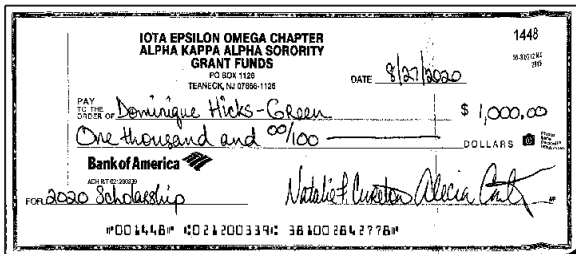 IOTA EPSILON OMEGA CHAPTER
ALPHA KAPPA ALPHA SORORITY
GRANT FUNDS
PO BOX 1126
TEANECK, NJ 07666-1126
1448
DATE 8/27/2020
PAY TO THE ORDER OF Dominique Hicks-Green $ 1,000.00
One thousand and 00/100 DOLLARS
Bank of America
FOR 2020 Scholarship
⑈001448⑈ ⑆021200339⑆ 381002842778⑈